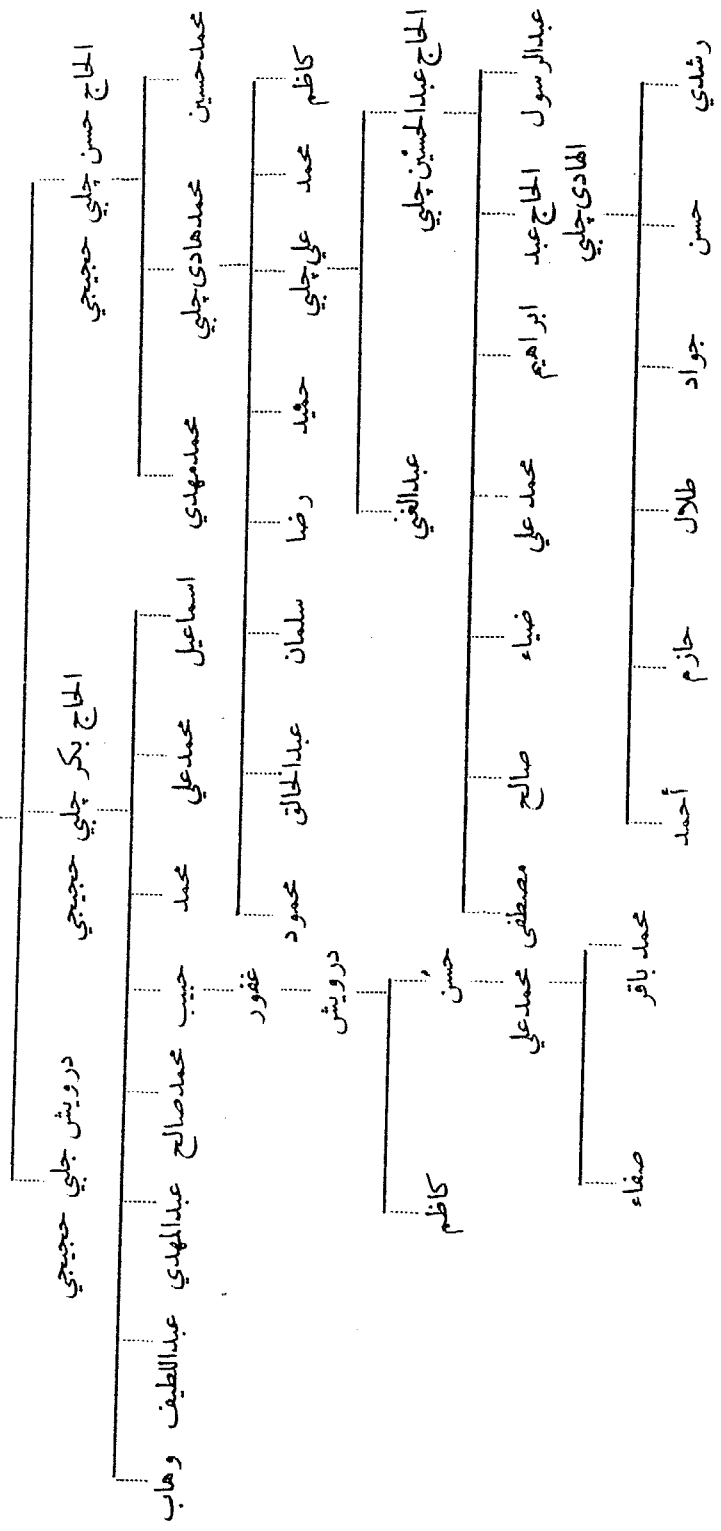 الحاج حسن چلبي حجيجي
الحاج بكر چلبي حجيجي
درويش چلبي حجيجي
محمد حسين
محمد هادي چلبي
محمد مهدي
اسماعيل
محمد علي
محمد
حبيب
محمد صالح
عبدالمهدي
عبداللطيف
وهاب
كاظم
محمد
علي چلبي
حميد
رضا
سلمان
عبدالخالق
محمود
غفور
درويش
الحاج عبدالحسين چلبي
عبدالغني
حسن
كاظم
عبدالرسول
الحاج عبد الهادي چلبي
ابراهيم
محمد علي
ضياء
صالح
مصطفى
محمد علي
رشدي
حسن
جواد
طلال
حازم
أحمد
محمد باقر
صفاء